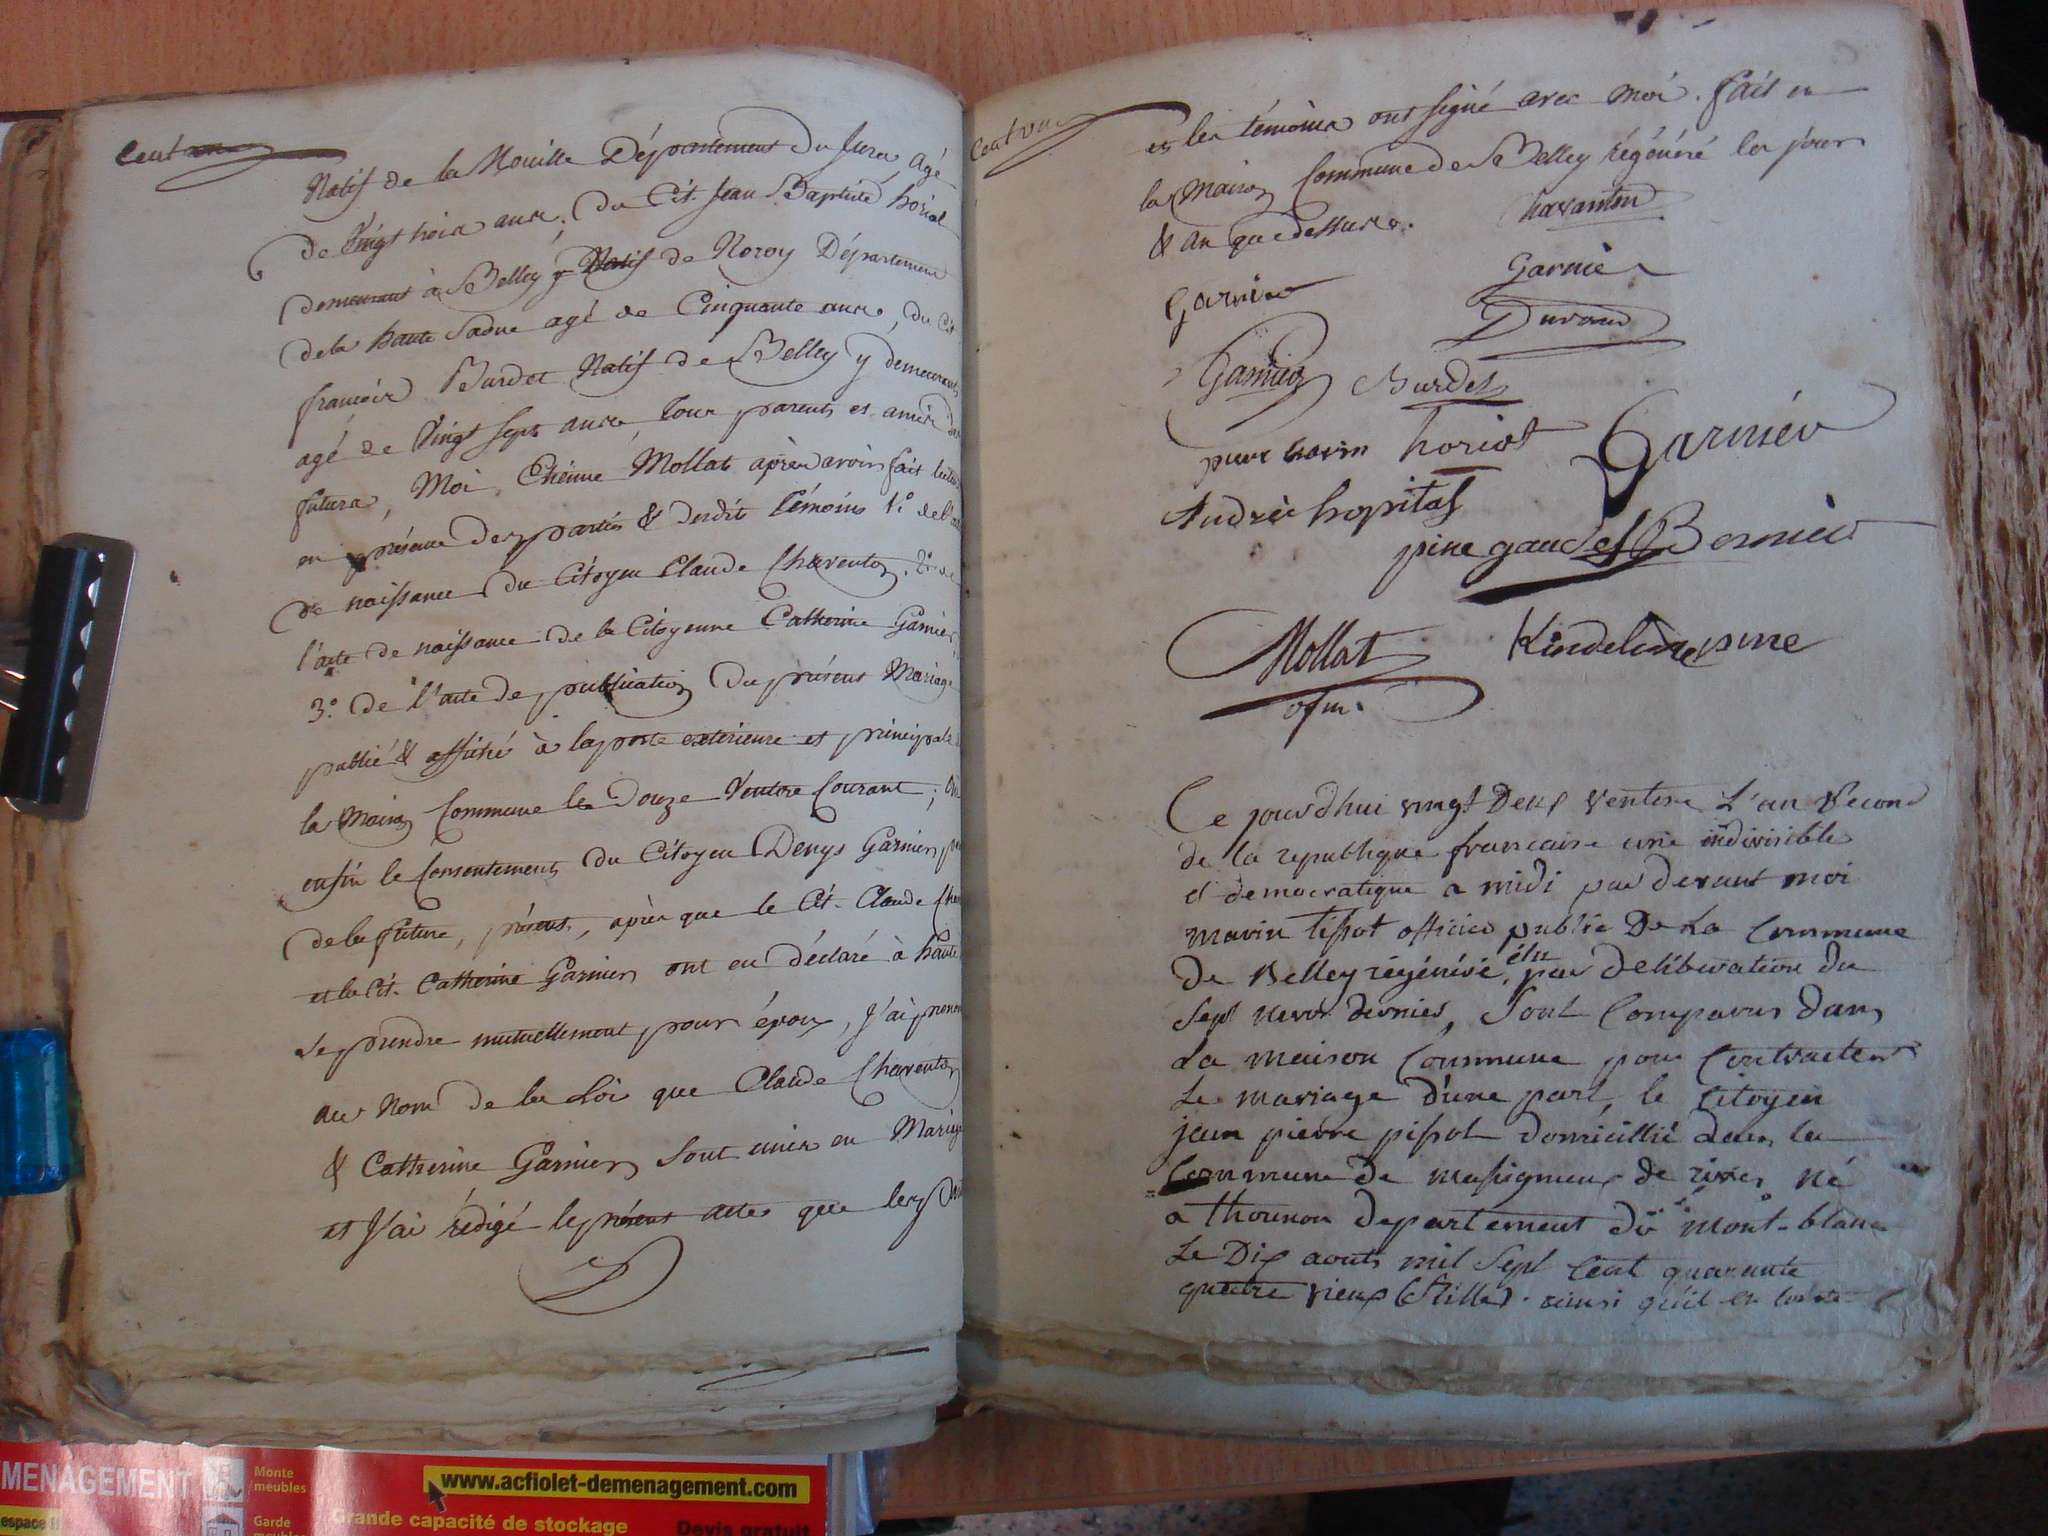 Natif de la Mouille Département du Jura, agé
de vingt trois ans, du Cit. Jean Baptiste horiot
demeurant à Belley, Natif de Noroy Département
de la haute Saône agé de Cinquante ans, du Cit
françois Burdet Natif de Belley y demeurant
agé de vingt sept ans tous parents et amis des
futurs, Moi Etienne Mollat après avoir fait lecture
en présence des parties & desdits témoins 1.° de l'acte
de naissance du Citoyen Claude Charenton, 2.° de
l'acte de naissance de la Citoyenne Catherine Garnier,
3.° de l'acte de publication du présent Mariage
publié & affiché à la porte extérieure et principale
la Maison Commune le Douze Ventose Courant;
enfin le Consentement du Citoyen Denys Garnier
de la future, présent, après que le Cit. Claude Char
et la Cit. Catherine Garnier ont eu déclaré à haute
se prendre mutuellement pour époux, J'ai pronon
au Nom de la Loi que Claude Charenton
& Catherine Garnier sont unis en Mariage
et J'ai rédigé le présent acte que les
et les témoins ont signé avec moi. fait en
la Maison Commune de Belley régénéré les jour
& an que dessus.
Garnier
Garnier
Durand
Garnier Burdet
horiot Garnier
André hopital
gaudet Bernier
Mollat
ofm. Kindelin
Ce jourd'hui vingt Deux ventose L'an Second
de la republique francaise une indivisible
et democratique a midi par devant moi
marin tissot officier public De La Commune
De Belley régénéré, élu par deliberation du
sept dernier, Sont Comparus dans
La maison Commune pour Contracter
Le mariage d'une part, le Citoyen
jean pierre pissot domicillié dans la
Commune de massigneux de rives né
a thounon departement du mont-blanc
Le Dix aouts mil sept Cent quarante
quatre vieux (Stille). ainsi qu'il en
MENAGEMENT
Monte
meubles
Garde
www.acfiolet-demenagement.com
espace
Grande capacité de stockage
Devis gratuit